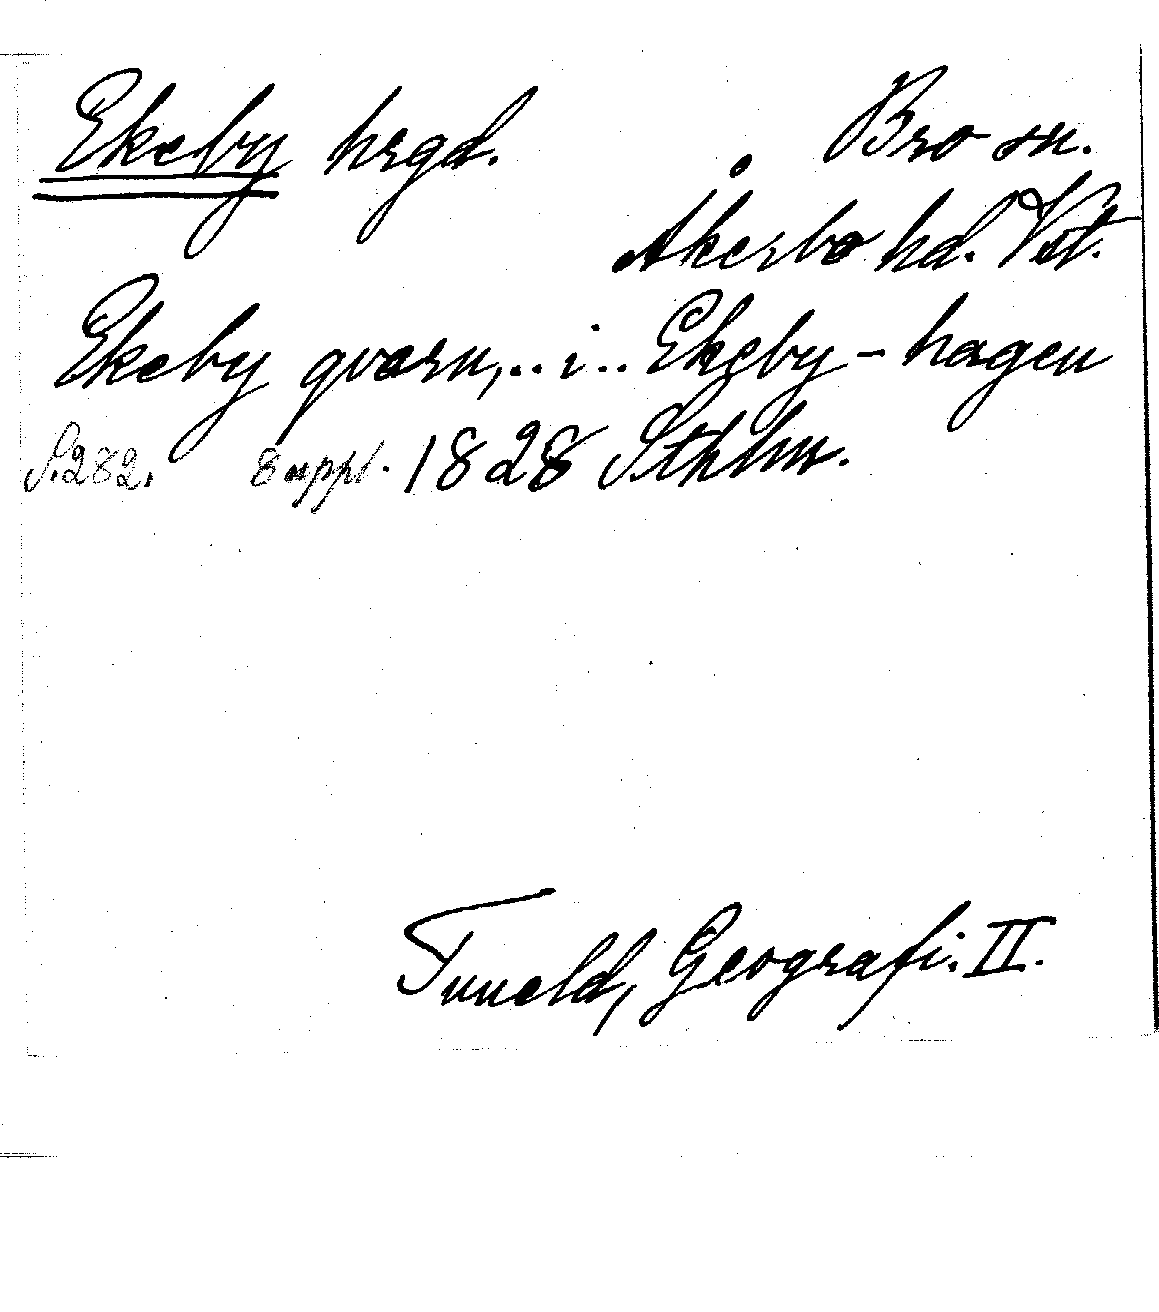 Ekeby hrgd. Bro sn.
Åkerbo hd. Vst.
Ekeby qvarn,.. i.. Ekeby-hagen
S. 282. 8 uppl. 1828 Sthlm.
Tuneld, Geografi. II.